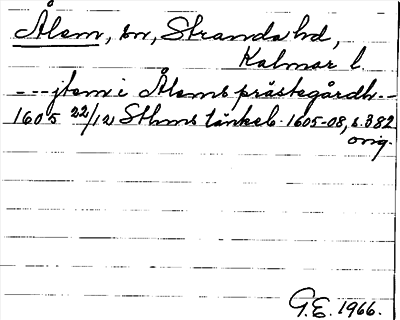 Ålem, sn, Stranda hd,
Kalmar l.
---jtem i Ålems prästegårdh.--
1605 22/12 Sthms tänkeb. 1605-08, s. 382
orig.
G.E. 1966.